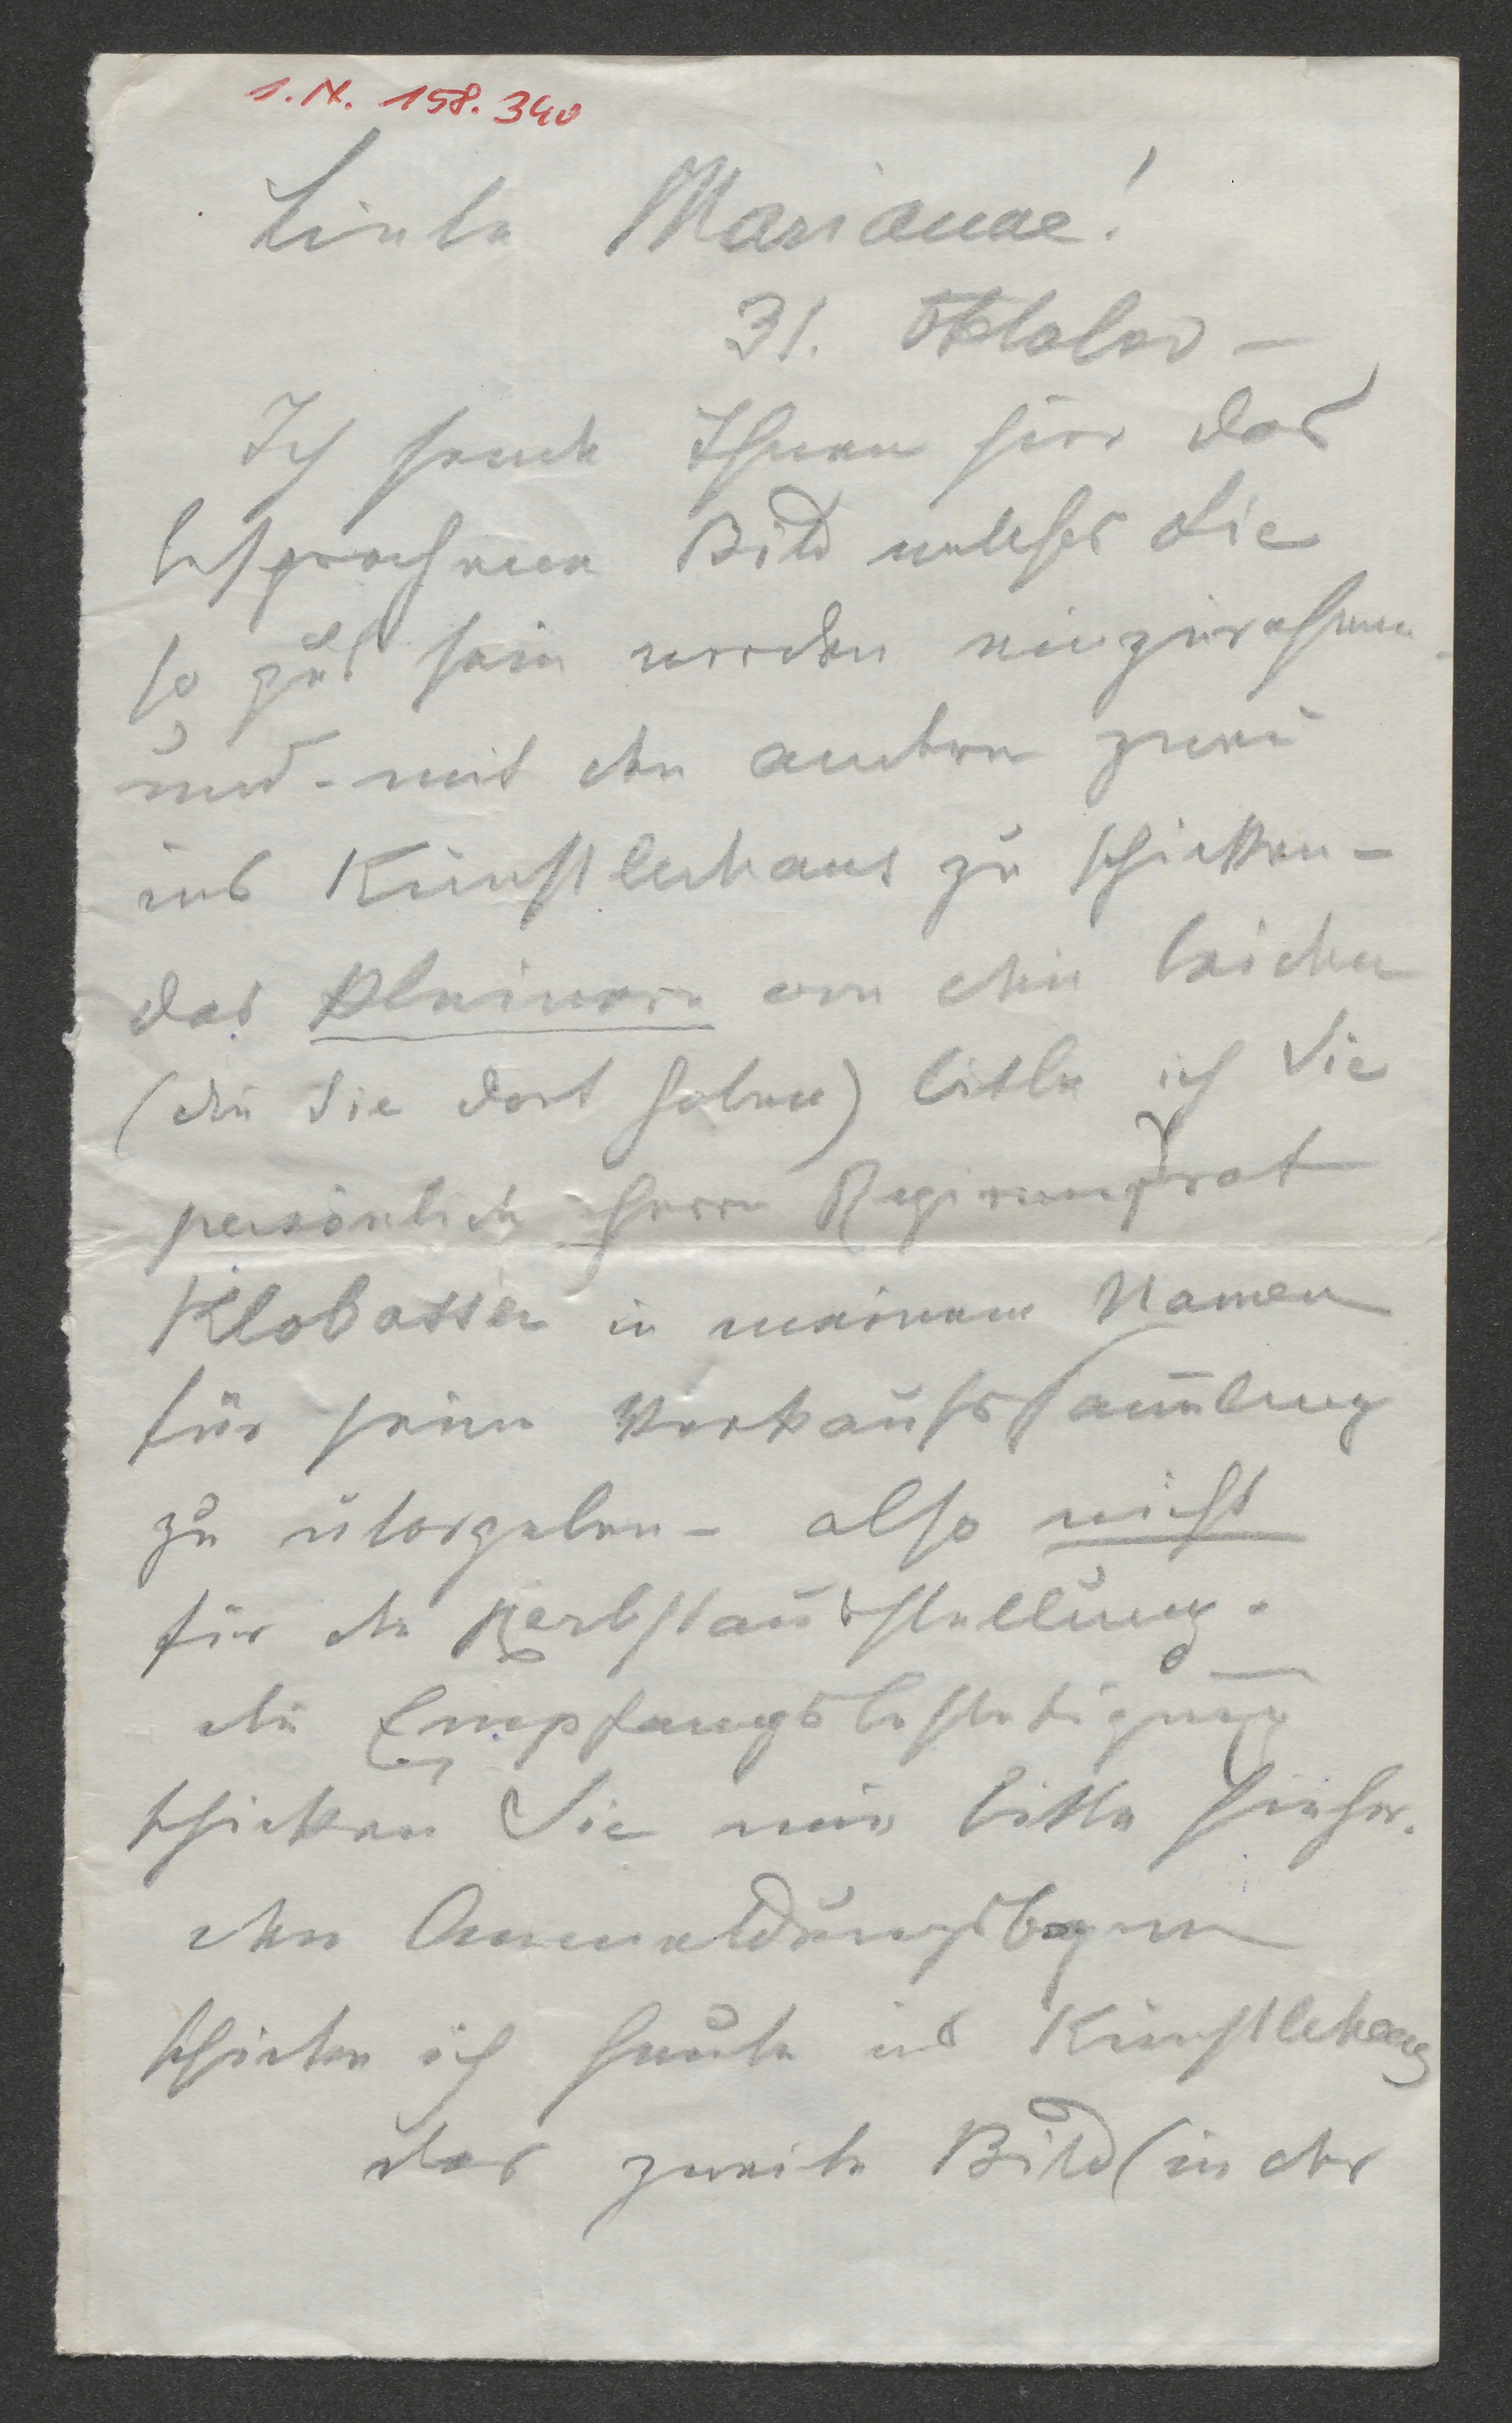 I.N. 158.340
Liebe Marianne!
31. Oktober -
Ich sende Ihnen hier das
besprochene Bild welches Sie
so gut sein werden einzurahmen
und - mit den andern zwei
ins Künstlerhaus zu schicken -
das kleinere von den beiden
(die Sie dort haben) bitte ich Sie
persönlich Herrn Regierungsrat
Klobasser in meinem Namen
für seine Verkaufssammlung
zu übergeben - also nicht
für die Herbstausstellung.
die Empfangsbestätigung
schicken Sie mir bitte hieher.
den Anmeldungsbogen
schicke ich heute ins Künstlerhaus
das zweite Bild (in der